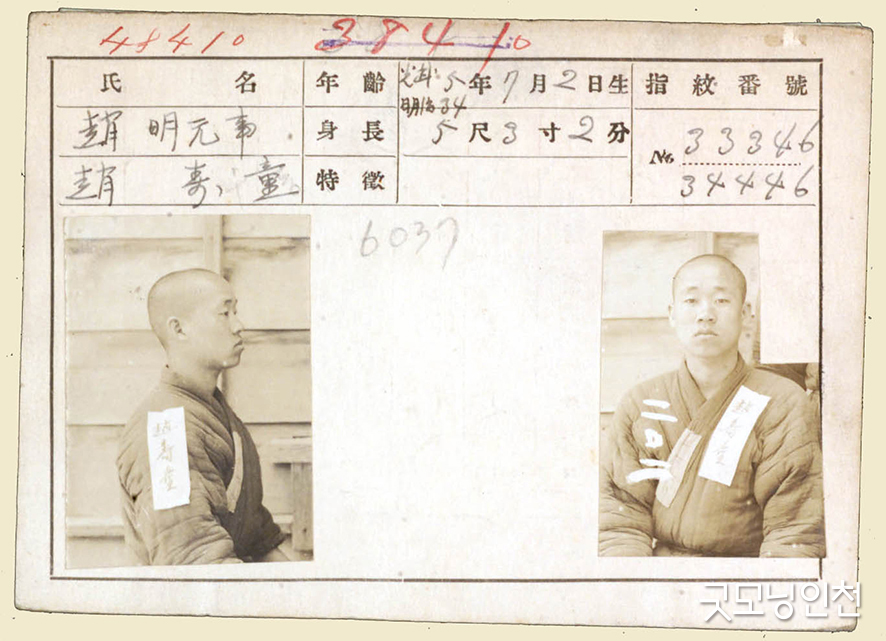 48410 38410
氏名 年齡 光武 5年7月2日生 指紋番號
明治34
趙明元事 身長 5尺3寸2分 No. 33346
趙壽童 特徵 34446
6037
趙壽童
趙壽童
굿모닝인천